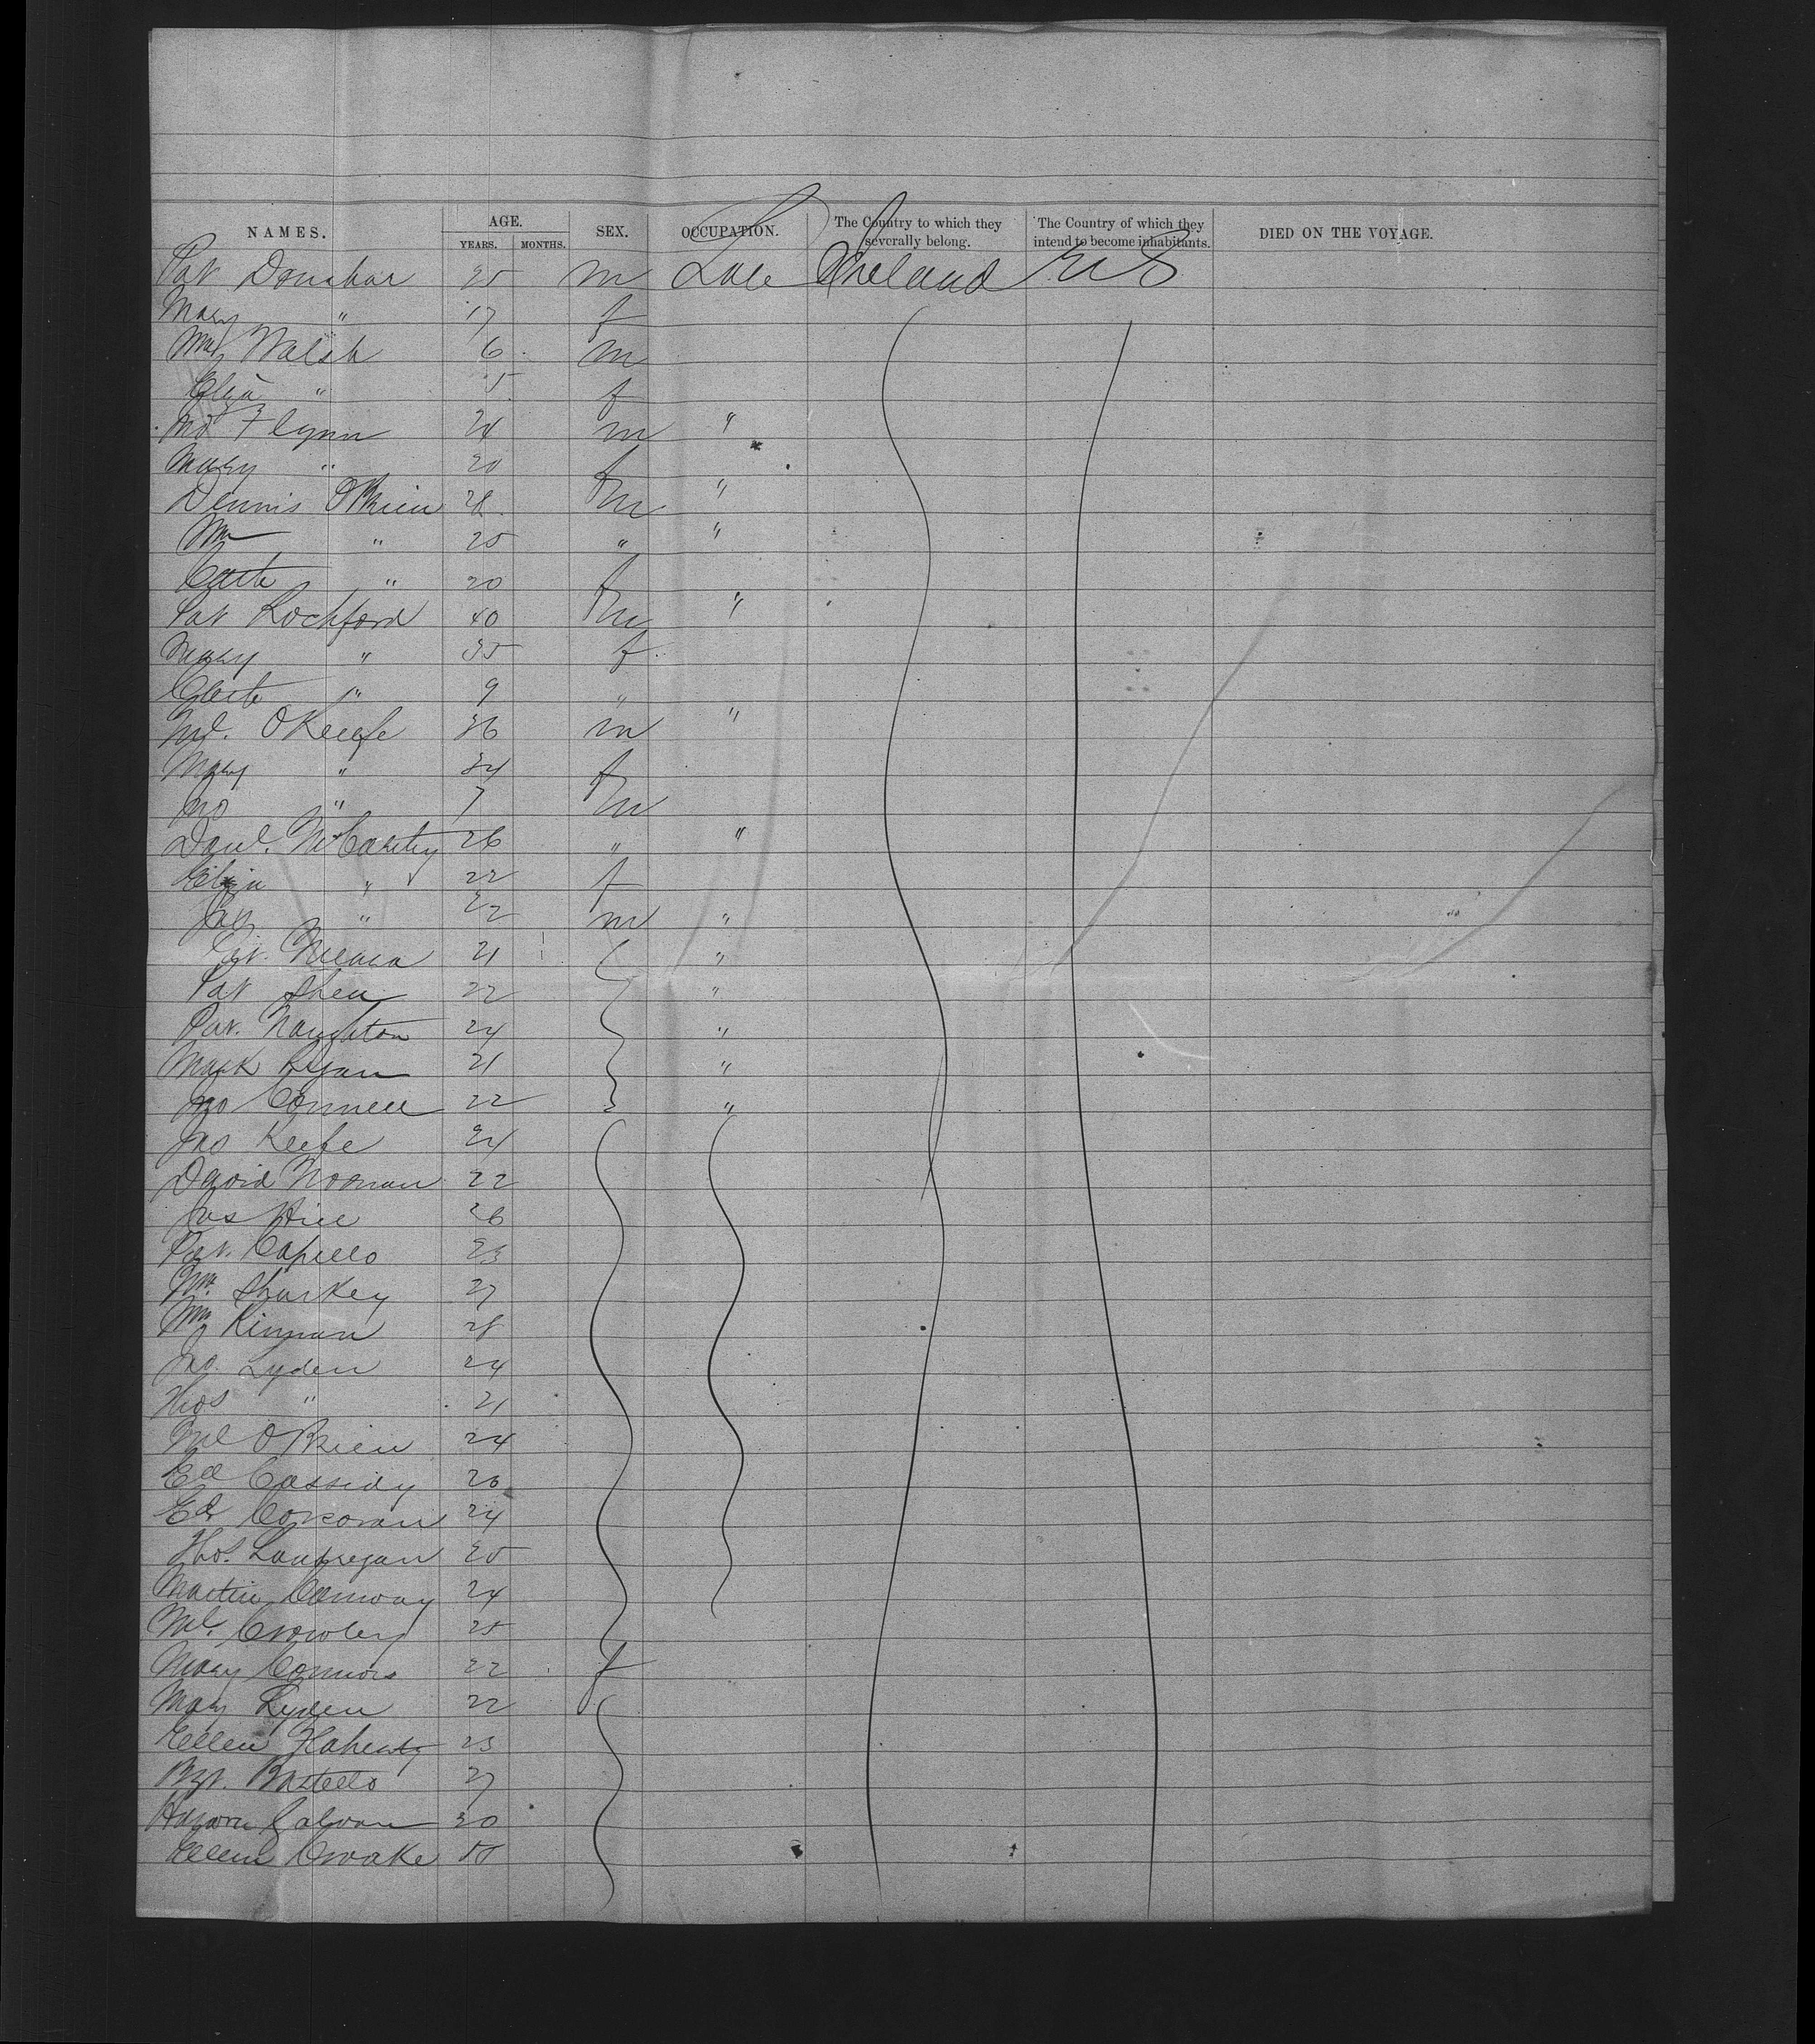 NAMES. AGE. YEARS. MONTHS. SEX. OCCUPATION. The Country to which they severally belong. The Country of which they intend to become inhabitants. DIED ON THE VOYAGE.
Pat 25 m Ireland U S
Mary " 17 f
Wm Walsh 6 m
Eliza " 5 f
Flynn 24 m "
Mary " 20 f
Dennis O'Brien 28 m "
Wm " 25 " "
Cath " 20 f
Pat Rochford 40 m "
Mary " 35 f
Cath " 9 "
Ml. O'Keefe 36 m "
Mary " 34 f
Jno " 7 m
Danl. McCarthy 26 " "
Eliza " 22 f
Jas " 22 m "
21 "
Pat Shea 22 "
Pat. Naughton 24 "
Mark Ryan 21 "
Jno Connell 22 "
Jno Keefe 24
David Noonan 22
Jas Hill 26
Pat. 23
Sharkey 27
Wm 28
Jno. Lyden 24
Thos " 21
Ml O'Brien 24
Ed Cassidy 20
Ed Corcoran 24
Thos. Landregan 20
Martin Conway 24
Ml. Crowley 25
Mary Connors 22 f
Mary Lyden 22
Ellen Flaherty 23
Bgt. 27
Galvan 30
Ellen 50